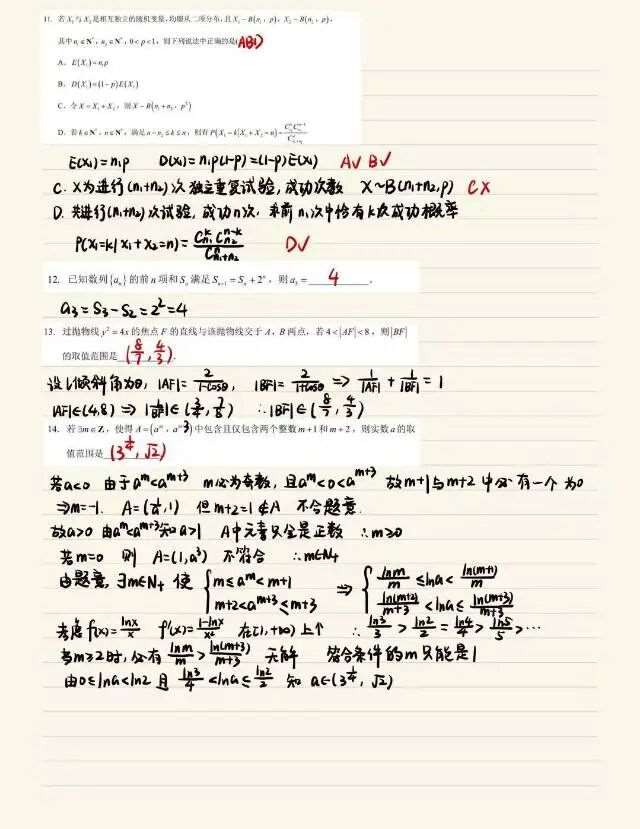 11. 若 X₁ 与 X₂ 是相互独立的随机变量, 均服从二项分布, 且 X₁~B(n₁, p), X₂~B(n₂, p),
其中 n₁∈N*, n₂∈N*, 0<p<1, 则下列说法中正确的是(ABD)
A. E(X₁)=n₁p
B. D(X₁)=(1-p)E(X₁)
C. 令 X=X₁+X₂, 则 X~B(n₁+n₂, p²)
D. 若 k∈N*, n∈N*, 满足 n-n₂≤k≤n, 则有 P(X₁=k|X₁+X₂=n)=
E(X₁)=n₁p D(X₁)=n₁p(1-p)=(1-p)E(X₁) A√ B√
C. X为进行(n₁+n₂)次 独立重复试验, 成功次数 X~B(n₁+n₂,p) C×
D. 共进行(n₁+n₂)次试验, 成功n次, 求前n₁次中恰有k次成功概率
P(X₁=k|X₁+X₂=n)=C_{n₁}^{k}C_{n₂}^{n-k}/C_{n₁+n₂}^{n} D√
12. 已知数列{aₙ}的前 n 项和 Sₙ 满足 Sₙ₊₁=Sₙ+2ⁿ, 则 a₃= 4 .
a₃=S₃-S₂=2²=4
13. 过抛物线 y²=4x 的焦点 F 的直线与该抛物线交于 A, B 两点, 若 4<|AF|<8, 则|BF|
的取值范围是 (8/7, 4/3).
设l倾斜角为θ, |AF|=2/(1-cosθ), |BF|=2/(1+cosθ) ⇒ 1/|AF|+1/|BF|=1
|AF|∈(4,8) ⇒ 1/|BF|∈(3/4, 7/8) ∴|BF|∈(8/7, 4/3)
14. 若∃m∈Z, 使得 A=(aᵐ, aᵐ⁺³) 中包含且仅包含两个整数 m+1 和 m+2, 则实数 a 的取
值范围是 (3^{1/4}, √2) .
若a<0 由于aᵐ<aᵐ⁺³ m必为奇数, 且aᵐ<0<aᵐ⁺³ 故m+1与m+2中必有一个为0
⇒m=-1. A=(1/a, 1) 但m+2=1∉A 不合题意.
故a>0 由aᵐ<aᵐ⁺³知a>1 A中元素只全是正数 ∴m≥0
若m=0 则 A=(1,a³) 不符合 ∴m∈N₊
由题意, ∃m∈N₊ 使 {m≤aᵐ<m+1 ⇒ {lnm/m≤lna<ln(m+1)/m
m+2<aᵐ⁺³≤m+3 ln(m+2)/(m+3)<lna≤ln(m+3)/(m+3)
考虑f(x)=lnx/x f'(x)=(1-lnx)/x² 在[1,+∞)上↑ ∴ln3/3>ln2/2=ln4/4>ln5/5>⋯
当m≥2时, 必有 lnm/m>ln(m+3)/(m+3) 无解 符合条件的m只能是1
由0≤lna<ln2且 ln3/4<lna≤ln2/2 知 a∈(3^{1/4}, √2)